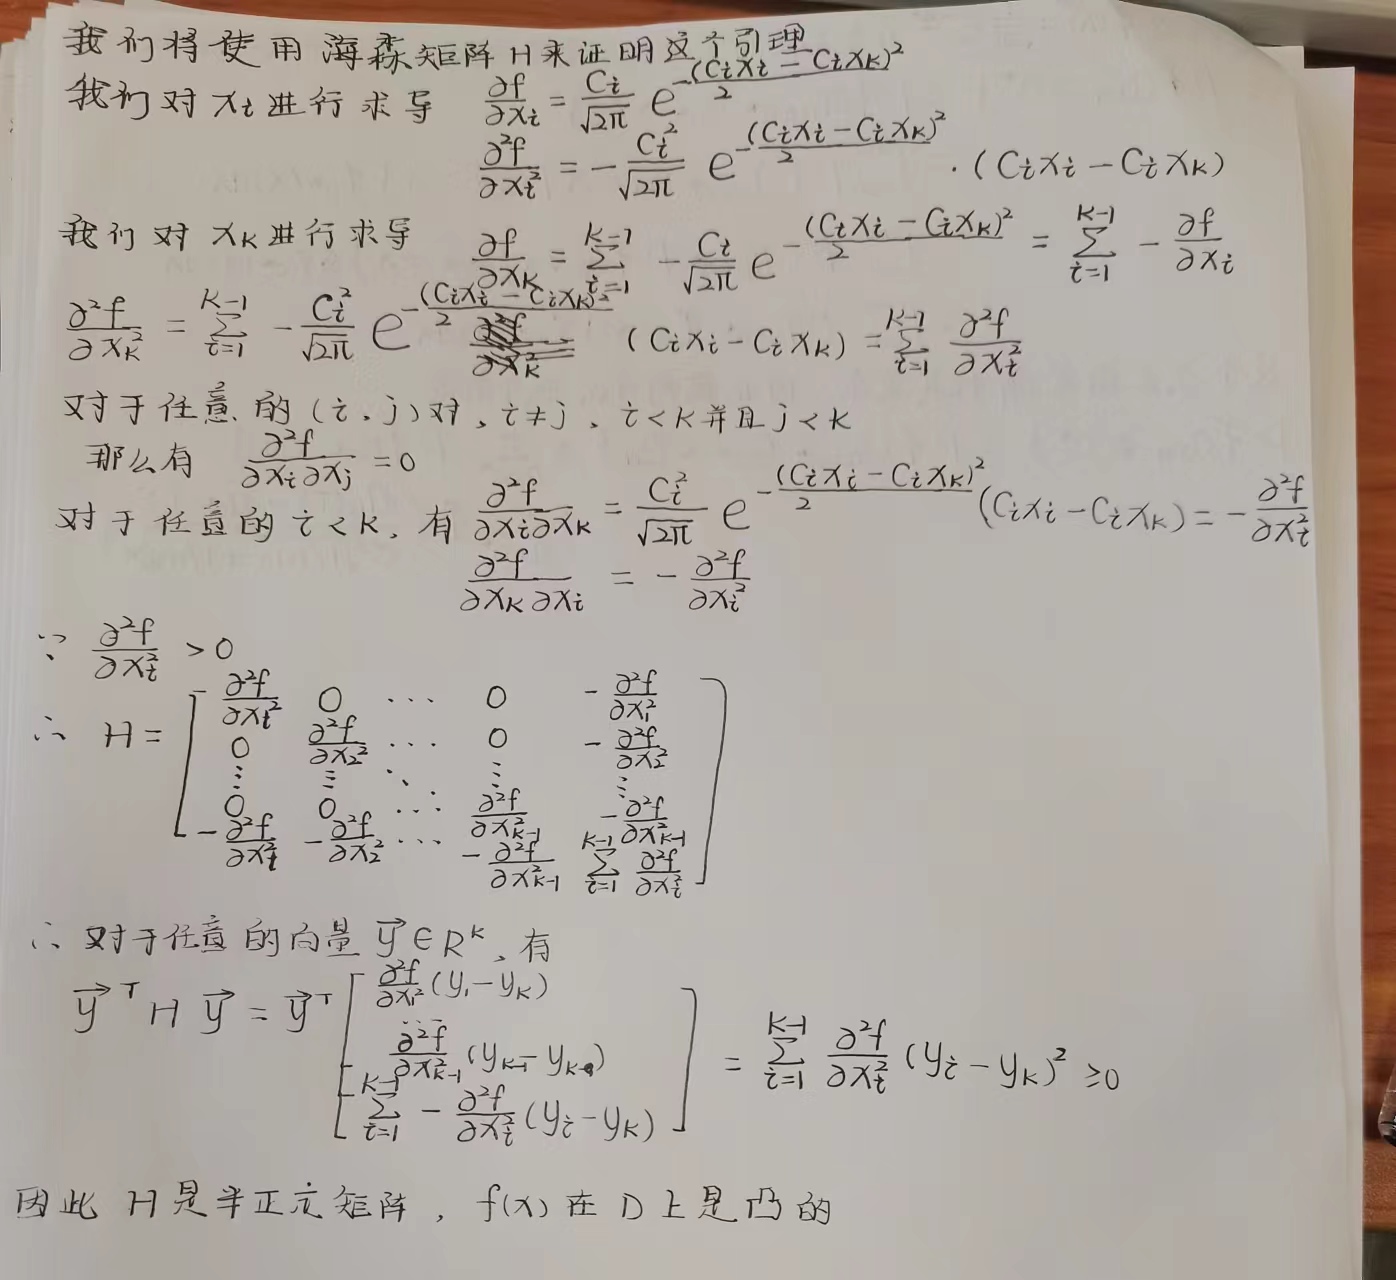 我们将使用海森矩阵H来证明这个引理
我们对 xᵢ 进行求导 ∂f/∂xᵢ = Cᵢ/√2π e^(-(Cᵢxᵢ - Cᵢxₖ)²/2)
∂²f/∂xᵢ² = -Cᵢ²/√2π e^(-(Cᵢxᵢ - Cᵢxₖ)²/2) · (Cᵢxᵢ - Cᵢxₖ)
我们对 xₖ 进行求导 ∂f/∂xₖ = Σ_{i=1}^{k-1} -Cᵢ/√2π e^(-(Cᵢxᵢ - Cᵢxₖ)²/2) = Σ_{i=1}^{k-1} -∂f/∂xᵢ
∂²f/∂xₖ² = Σ_{i=1}^{k-1} -Cᵢ²/√2π e^(-(Cᵢxᵢ - Cᵢxₖ)²/2) (Cᵢxᵢ - Cᵢxₖ) = Σ_{i=1}^{k-1} ∂²f/∂xᵢ²
对于任意的(i,j)对,i≠j,i<k并且j<k
那么有 ∂²f/∂xᵢ∂xⱼ = 0
对于任意的 i<k,有 ∂²f/∂xᵢ∂xₖ = Cᵢ²/√2π e^(-(Cᵢxᵢ - Cᵢxₖ)²/2) (Cᵢxᵢ - Cᵢxₖ) = -∂²f/∂xᵢ²
∂²f/∂xₖ∂xᵢ = -∂²f/∂xᵢ²
∵ ∂²f/∂xᵢ² > 0
∴ H = [ ∂²f/∂x₁² 0 ... 0 -∂²f/∂x₁²
0 ∂²f/∂x₂² ... 0 -∂²f/∂x₂²
⋮ ⋮ ⋱ ⋮ ⋮
0 0 ... ∂²f/∂x²ₖ₋₁ -∂²f/∂x²ₖ₋₁
-∂²f/∂x₁² -∂²f/∂x₂² ... -∂²f/∂x²ₖ₋₁ Σ_{i=1}^{k-1} ∂²f/∂xᵢ² ]
∴ 对于任意的向量 y⃗ ∈ Rᵏ,有
y⃗ᵀ H y⃗ = y⃗ᵀ [ ∂²f/∂x₁² (y₁ - yₖ)
...
∂²f/∂x²ₖ₋₁ (yₖ₋₁ - yₖ)
Σ_{i=1}^{k-1} -∂²f/∂xᵢ² (yᵢ - yₖ) ] = Σ_{i=1}^{k-1} ∂²f/∂xᵢ² (yᵢ - yₖ)² ≥ 0
因此 H是半正定矩阵,f(x)在D上是凸的